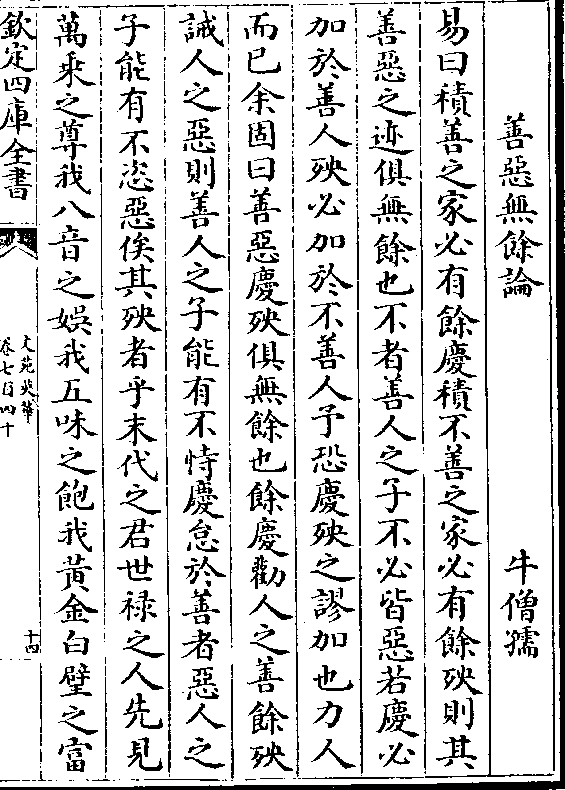 善惡無餘論 牛僧孺
易曰積善之家必有餘慶積不善之家必有餘殃則其
善惡之迹俱無餘也不者善人之子不必皆惡若慶必
加於善人殃必加於不善人予恐慶殃之謬加也力人
而已余固曰善惡慶殃俱無餘也餘慶勸人之善餘殃
誡人之惡則善人之子能有不恃慶怠於善者惡人之
子能有不恣惡俟其殃者乎末代之君世祿之人先見
萬乗之尊我八音之娛我五味之飽我黃金白璧之富
欽定四庫全書
文苑英華
卷七百四十
十四